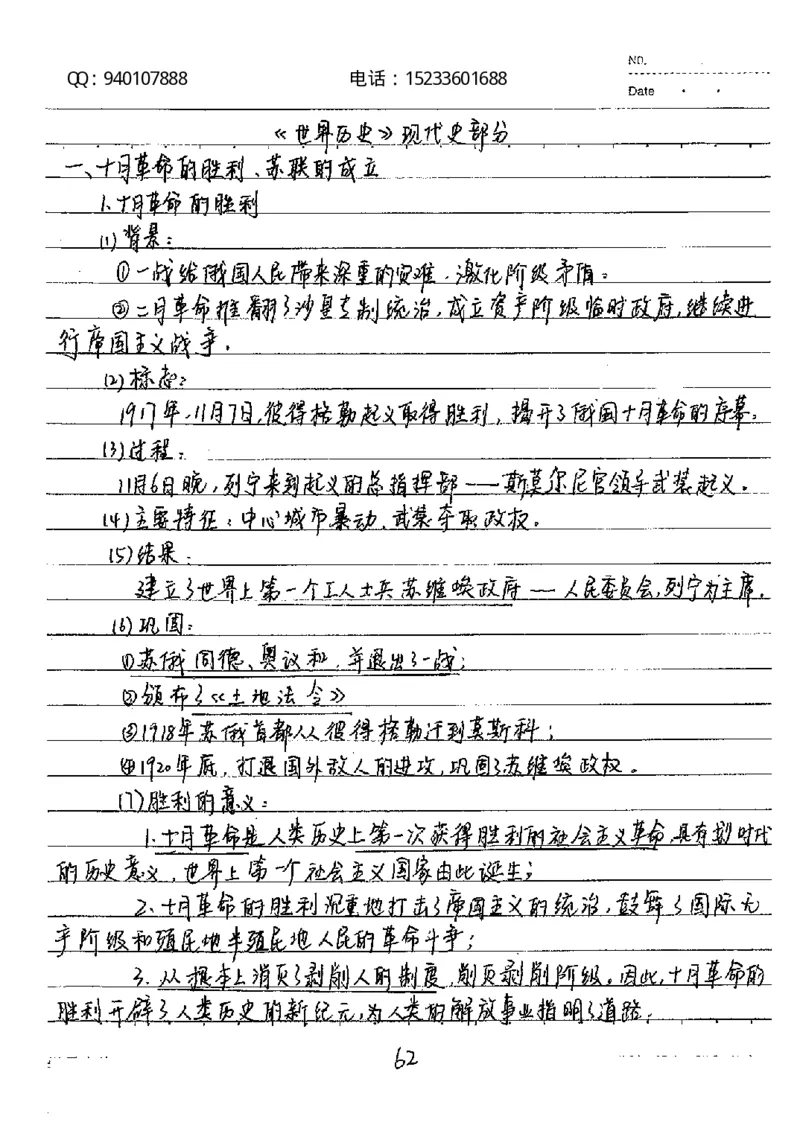 QQ：940107888 电话：15233601688 NO.
Date
《世界历史》现代史部分
一、十月革命的胜利、苏联的成立
1.十月革命的胜利
(1)背景：
①一战给俄国人民带来深重的灾难，激化阶级矛盾。
②二月革命推翻了沙皇专制统治，成立资产阶级临时政府，继续进
行帝国主义战争。
(2)标志：
1917年11月7日，彼得格勒起义取得胜利，揭开了俄国十月革命的序幕。
(3)过程：
11月6日晚，列宁来到起义的总指挥部——斯莫尔尼宫领导武装起义。
(4)主要特征：中心城市暴动、武装夺取政权。
(5)结果：
建立了世界上第一个工人士兵苏维埃政府——人民委员会，列宁为主席。
(6)巩固：
①苏俄同德、奥议和，并退出了一战；
②颁布了《土地法令》
③1918年苏俄首都从彼得格勒迁到莫斯科；
④1920年底，打退国外敌人的进攻，巩固了苏维埃政权。
(7)胜利的意义：
1.十月革命是人类历史上第一次获得胜利的社会主义革命，具有划时代
的历史意义，世界上第一个社会主义国家由此诞生；
2、十月革命的胜利沉重地打击了帝国主义的统治，鼓舞了国际无
产阶级和殖民地半殖民地人民的革命斗争；
3.从根本上消灭了剥削人的制度，消灭剥削阶级。因此，十月革命的
胜利开辟了人类历史的新纪元，为人类的解放事业指明了道路；
62